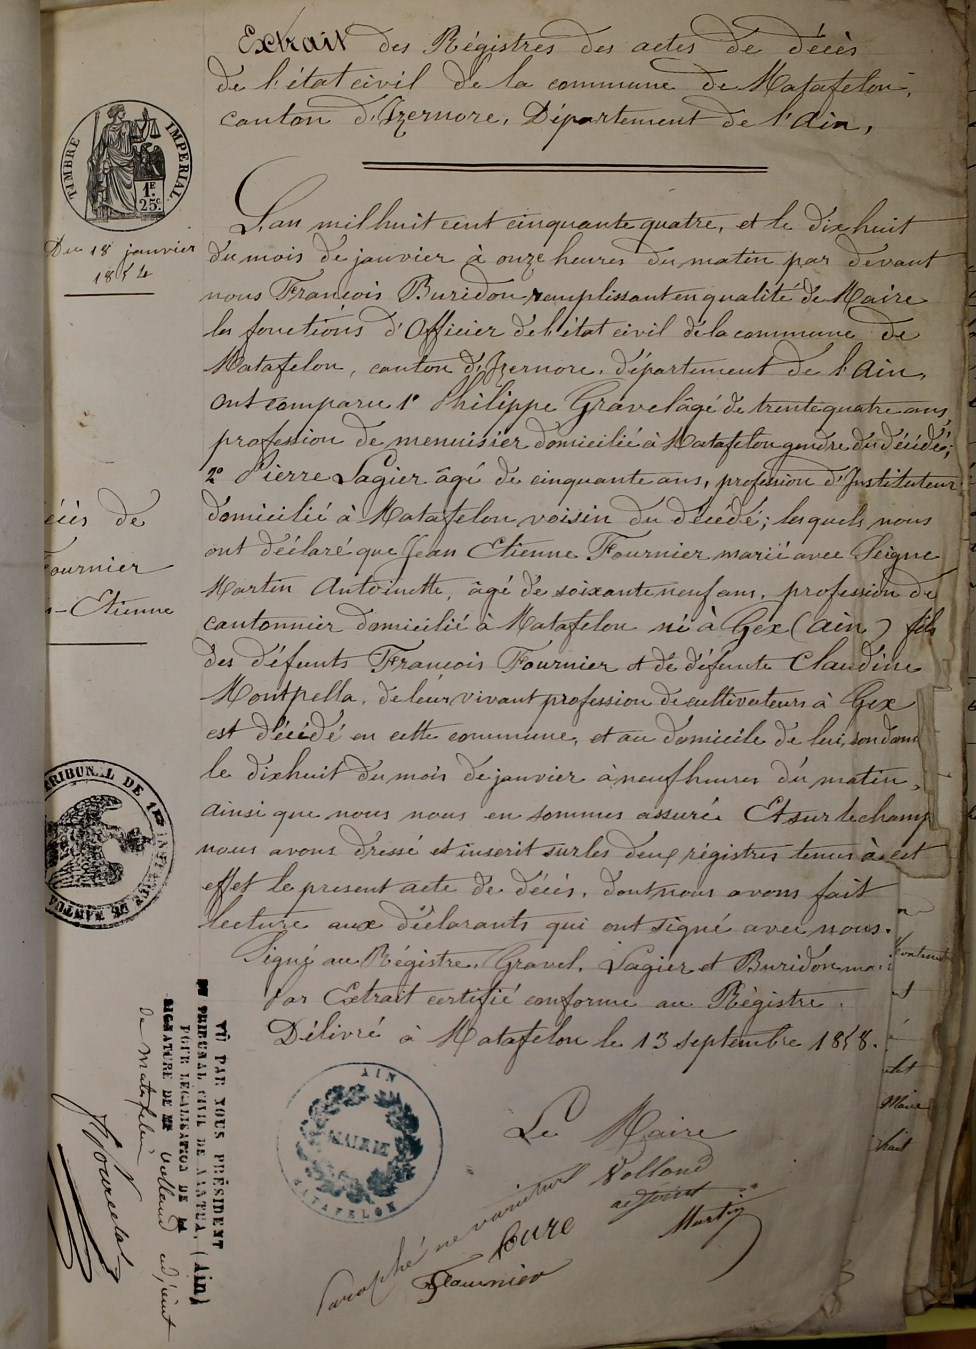 Extrait des Régistres des actes de décès
de l'état civil de la commune de Matafelon,
canton d'Izernore, Département de l'Ain,
TIMBRE IMPERIAL
1F. 25c.
Du 18 janvier
1854
L'an mil huit cent cinquante quatre, et le dix huit
du mois de janvier à onze heures du matin par devant
nous Francois Buridon, remplissant en qualité de Maire
les fonctions d'Officier de l'état civil de la commune de
Matafelon, canton d'Izernore, département de l'Ain,
ont comparu 1° Philippe Gravel âgé de trente quatre ans,
profession de menuisier domicilié à Matafelon gendre du décédé;
2° Pierre Lagier âgé de cinquante ans, profession d'Instituteur
domicilié à Matafelon voisin du décédé; lesquels nous
ont déclaré que Jean Etienne Fournier marié avec Seigne
Martin Antoinette, âgé de soixante neuf ans, profession de
cantonnier domicilié à Matafelon né à Gex (Ain) fils
des défunts Francois Fournier et de défunte Claudine
Montpella, de leur vivant profession de cultivateurs à Gex
est décédé en cette commune, et au domicile de lui, son dom
le dix huit du mois de janvier à neuf heures du matin,
ainsi que nous nous en sommes assuré. Et sur le champ
nous avons dressé et inscrit sur les deux régistres tenus à cet
effet le present acte de décès, dont nous avons fait
lecture aux déclarants qui ont signé avec nous.
Signé au Régistre, Gravel, Lagier et Buridon mai
Par Extrait certifié conforme au Régistre.
Délivré à Matafelon le 13 septembre 1858.
écès de
Fournier
n-Etienne
TRIBUNAL DE 1ERE INSTANCE DE NANTUA
VÛ PAR NOUS PRÉSIDENT
DU TRIBUNAL CIVIL DE NANTUA, (Ain)
POUR LÉGALISATION DE LA
SIGNATURE DE MR Volland adjoint
de Matafelon,
AIN
MAIRIE
MATAFELON
Le Maire
Volland
adjoint
Paraphé ne varietur
Cure
Martin
Fournier
Maire